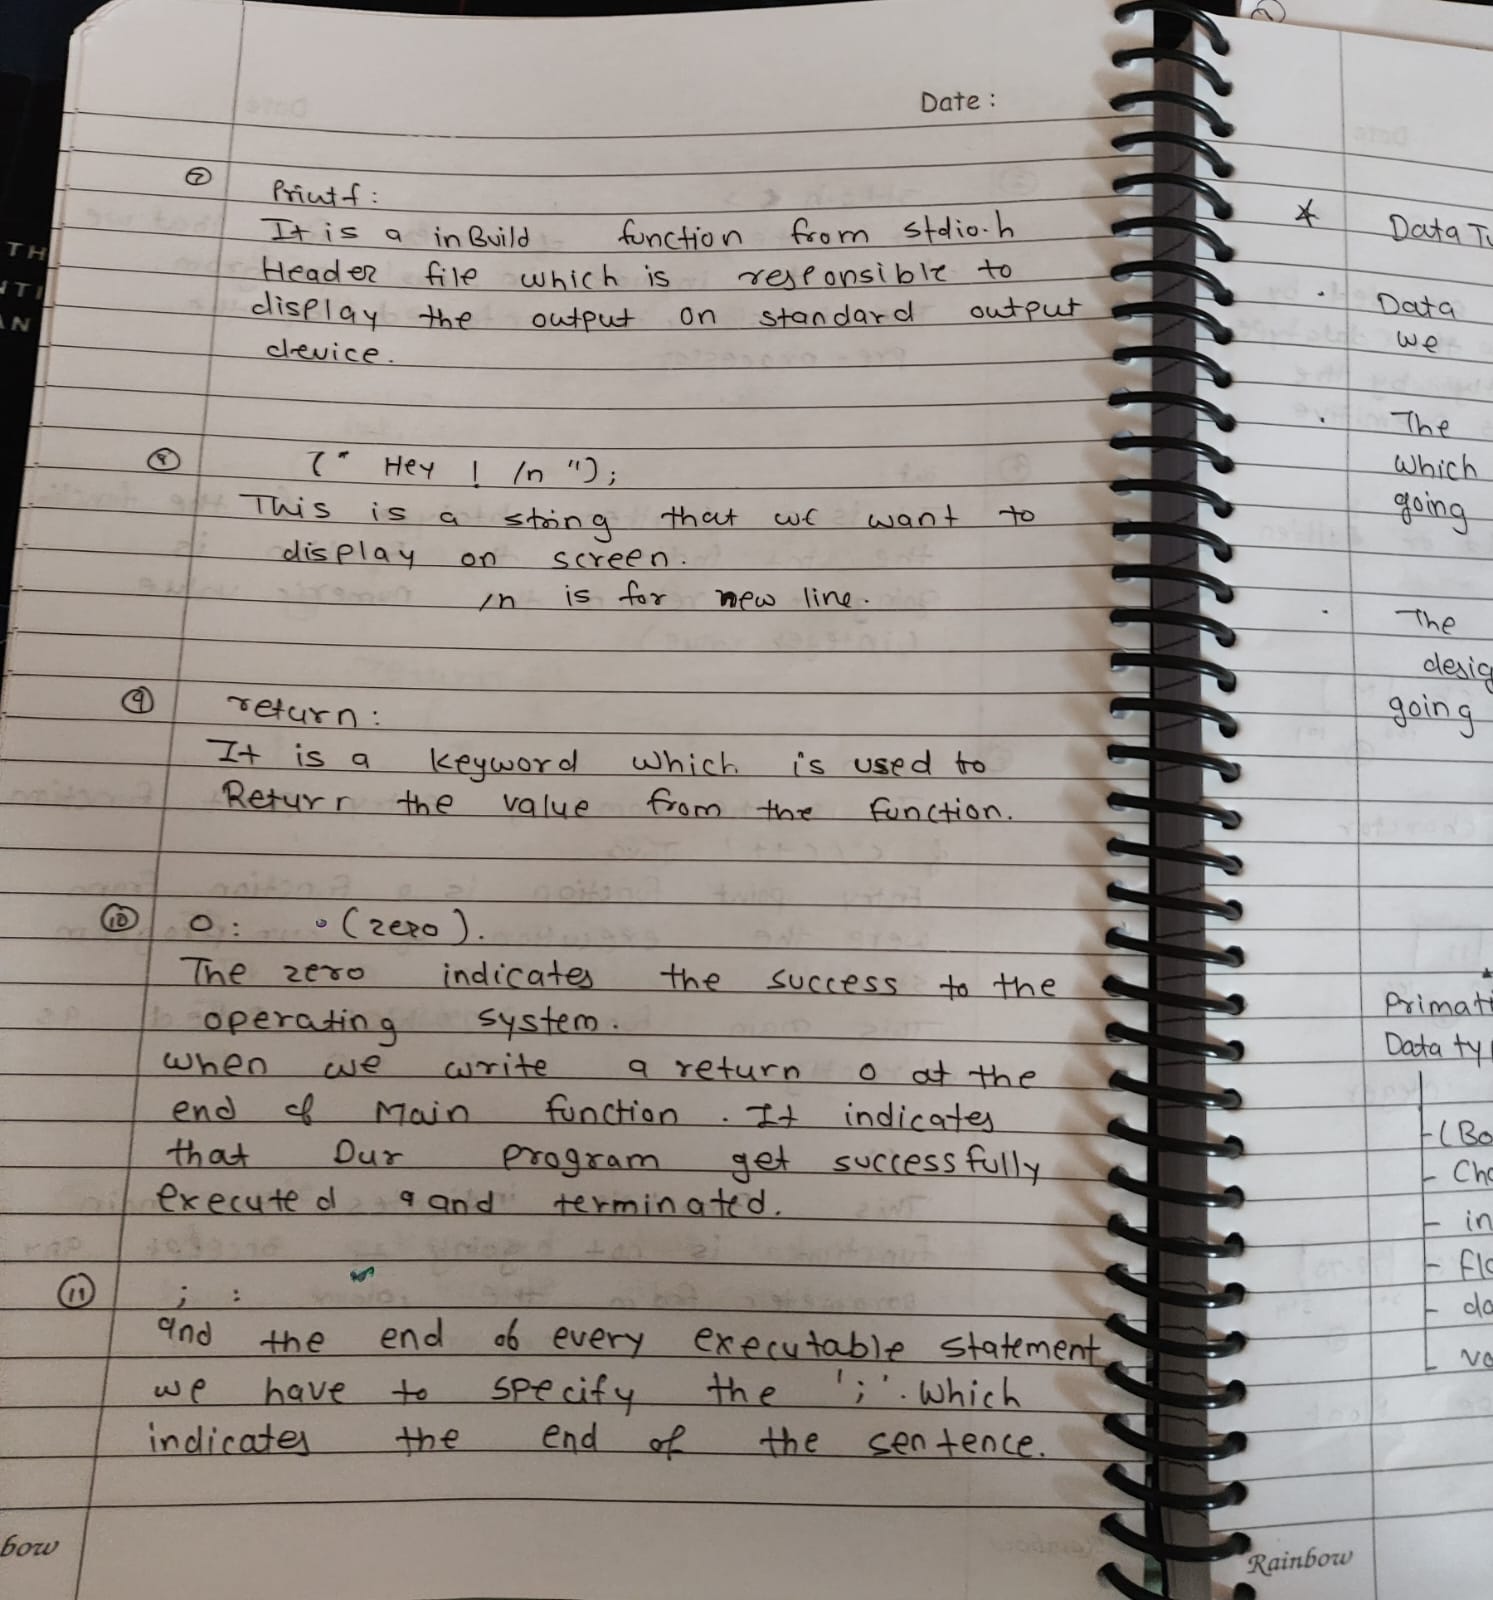 Date :
⑦ Printf :
It is a inBuild function from stdio.h
Header file which is responsible to
display the output on standard output
device.
⑧ (" Hey ! /n ");
This is a string that we want to
display on screen.
/n is for new line.
⑨ return :
It is a keyword which is used to
Return the value from the function.
⑩ 0 : (zero).
The zero indicates the success to the
operating system.
when we write a return 0 at the
end of Main function . It indicates
that Our program get successfully
executed and terminated.
⑪ ; :
and the end of every executable statement
we have to specify the ';'. Which
indicates the end of the sentence.
bow
* Data Ty
. Data
we
. The
which
going
. The
desig
going
Primati
Data ty
(Bo
- Cha
- in
- flo
- do
- vo
Rainbow